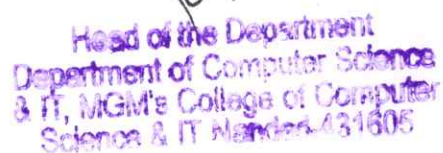 Head of the Department
Department of Computer Science
& IT, MGM's College of Computer
Science & IT Nanded-431605